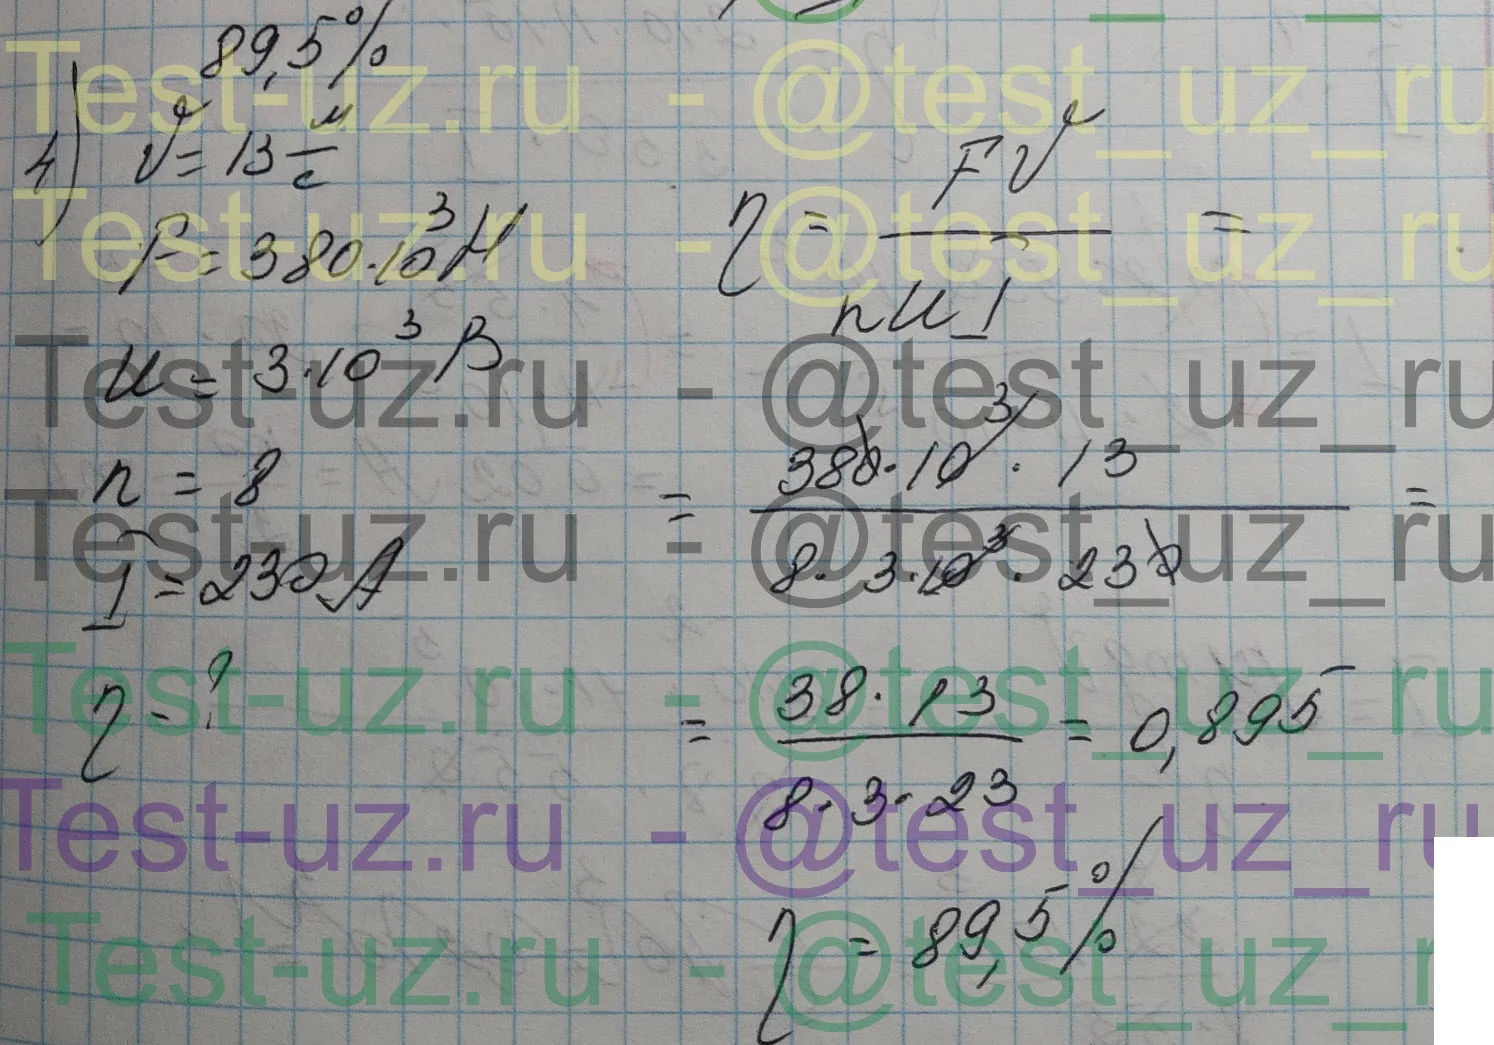 89,5%
4) V = 13 м/с
F = 380·10³ Н
U = 3·10³ В
n = 8
I = 230 А
η - ?
η = FV / nUI =
= 380·10³·13 / 8·3·10³·230 =
= 38·13 / 8·3·23 = 0,895
η = 89,5%
Test-uz.ru - @test_uz_ru
Test-uz.ru - @test_uz_ru
Test-uz.ru - @test_uz_ru
Test-uz.ru - @test_uz_ru
Test-uz.ru - @test_uz_ru
Test-uz.ru - @test_uz_ru
Test-uz.ru - @test_uz_r